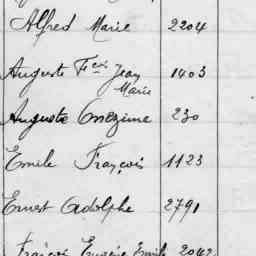 Alfred Marie 2204
Auguste Fcois Jean 1403
Marie
Auguste Onézime 230
Emile François 1123
Ernest Adolphe 2791
François Eugène Emile 2042